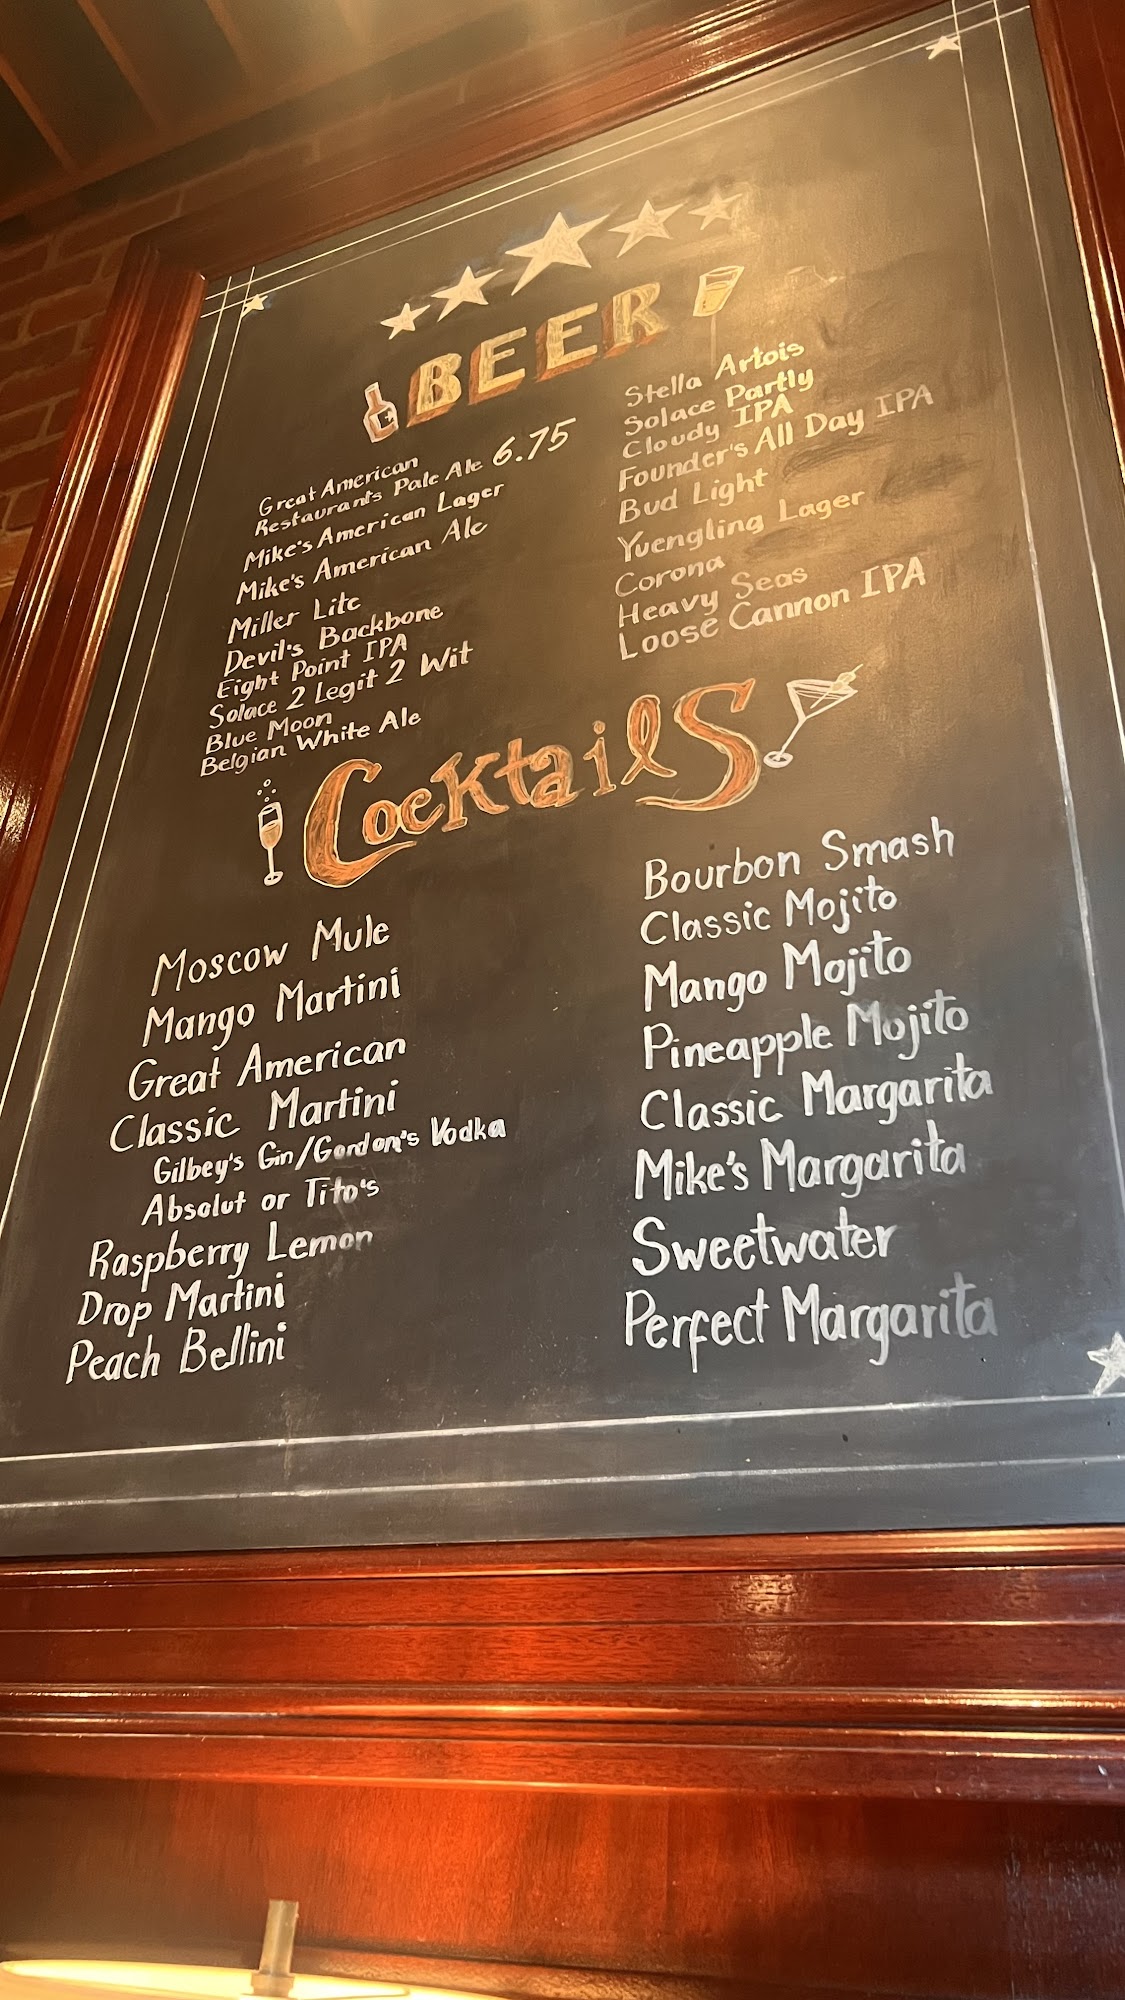 BEER
Great American
Restaurants Pale Ale 6.75
Mike's American Lager
Mike's American Ale
Miller Lite
Devil's Backbone
Eight Point IPA
Solace 2 Legit 2 Wit
Blue Moon
Belgian White Ale
Stella Artois
Solace Partly
Cloudy IPA
Founder's All Day IPA
Bud Light
Yuengling Lager
Corona
Heavy Seas
Loose Cannon IPA
Cocktails
Moscow Mule
Mango Martini
Great American
Classic Martini
Gilbey's Gin/Gordon's Vodka
Absolut or Tito's
Raspberry Lemon
Drop Martini
Peach Bellini
Bourbon Smash
Classic Mojito
Mango Mojito
Pineapple Mojito
Classic Margarita
Mike's Margarita
Sweetwater
Perfect Margarita